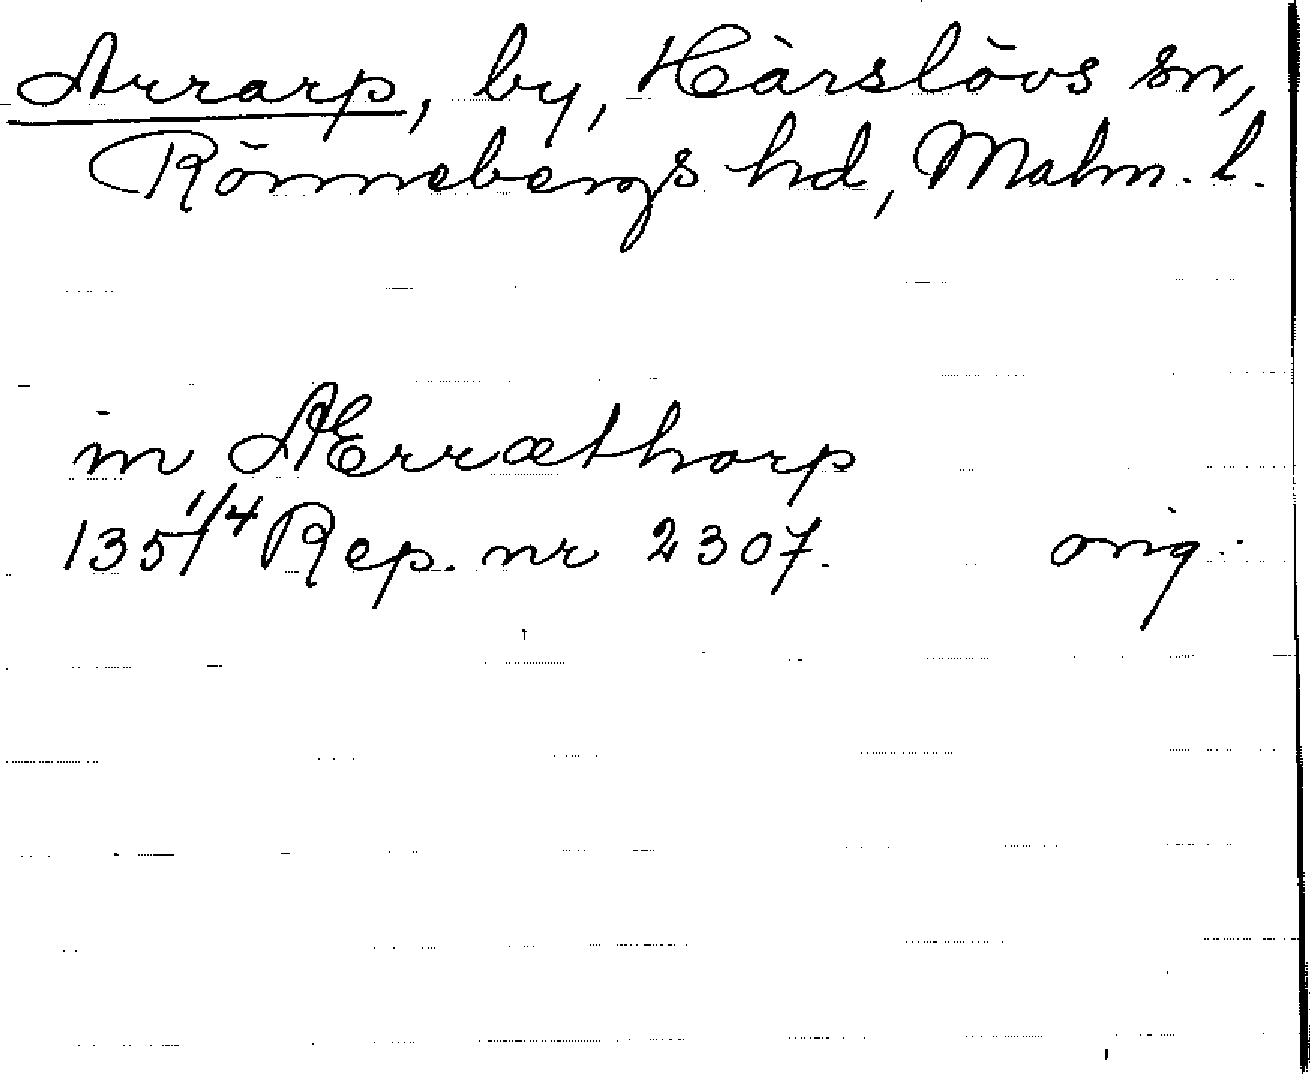 Arrarp, by, Härslövs sn,
Rönnebergs hd, Malm. l.
in AErræthorp
1357 1/4 Rep. nr 2307. orig.